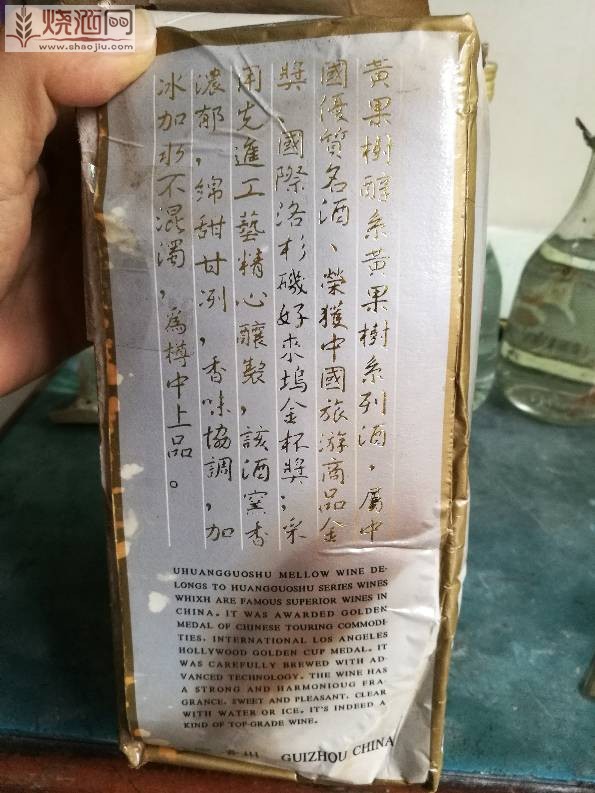 烧酒网
www.shaojiu.com
黃果樹醇系黃果樹系列酒，屬中
國優質名酒、榮獲中國旅游商品金
獎、國際洛杉磯好來塢金杯獎；采
用先進工藝精心釀製，該酒窖香
濃郁，綿甜甘冽，香味協調，加
冰加水不混濁，為樽中上品。
UHUANGGUOSHU MELLOW WINE DE-
LONGS TO HUANGGUOSHU SERIES WINES
WHIXH ARE FAMOUS SUPERIOR WINES IN
CHINA. IT WAS AWARDED GOLDEN
MEDAL OF CHINESE TOURING COMMODI-
TIES, INTERNATIONAL LOS ANGELES
HOLLYWOOD GOLDEN CUP MEDAL. IT
WAS CAREFULLY BREWED WITH AD-
VANCED TECHNOLOGY. THE WINE HAS
A STRONG AND HARMONIOUG FRA-
GRANCE, SWEET AND PLEASANT, CLEAR
WITH WATER OR ICE. IT'S INDEED A
KIND OF TOP-GRADE WINE.
GUIZHOU CHINA